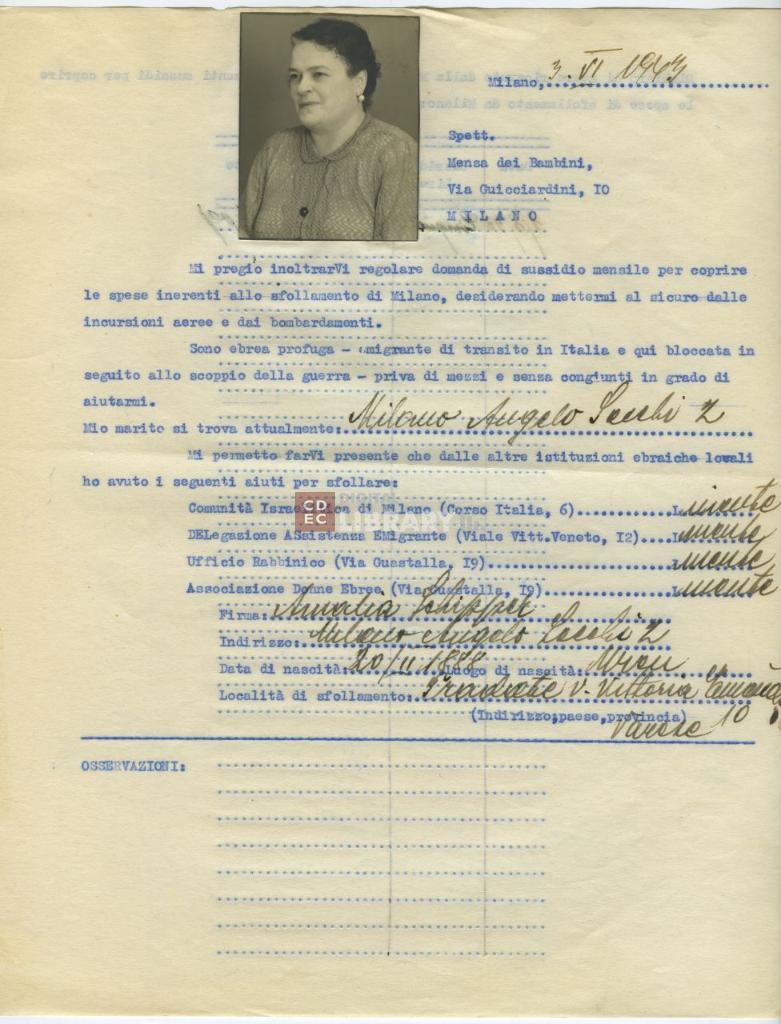 Milano, 3. VI 1943
Spett.
Mensa dei Bambini,
Via Guicciardini, 10
MILANO
Mi pregio inoltrarVi regolare domanda di sussidio mensile per coprire
le spese inerenti allo sfollamento di Milano, desiderando mettermi al sicuro dalle
incursioni aeree e dai bombardamenti.
Sono ebrea profuga - emigrante di transito in Italia e qui bloccata in
seguito allo scoppio della guerra - priva di mezzi e senza congiunti in grado di
aiutarmi.
Mio marito si trova attualmente: Milano Angelo Secchi 2
Mi permetto farVi presente che dalle altre istituzioni ebraiche locali
ho avuto i seguenti aiuti per sfollare:
CDEC DIGITAL LIBRARY
Comunità Israelitica di Milano (Corso Italia, 6) niente
DELegazione ASsistenza EMigrante (Viale Vitt.Veneto, 12) niente
Ufficio Rabbinico (Via Guastalla, 19) niente
Associazione Donne Ebree (Via Guastalla, 19) niente
Firma: Amalia Schipper
Indirizzo: Milano Angelo Secchi 2
Data di nascita: 20/II 1888 Luogo di nascita: Wien
Località di sfollamento: Tradate V. Vittorio
(Indirizzo,paese,provincia) 10
Varese
OSSERVAZIONI: